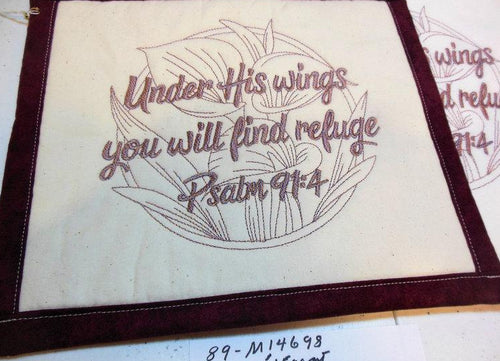 Under His wings
you will find refuge
Psalm 91:4
s wings
d refu
91:4
89-M14698